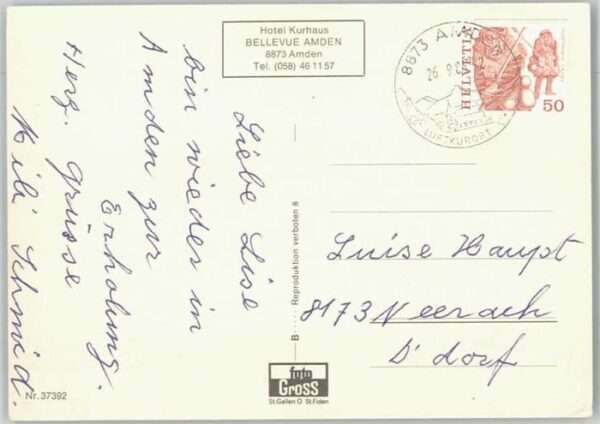 Hotel Kurhaus
BELLEVUE AMDEN
8873 Amden
Tel. (058) 46 11 57
Liebe Lise
bin wieder in
Amden zur
Erholung.
Herz. Grüsse
Mili Schmid.
8873 AMDEN
26.9.
LUFTKURORT
HELVETIA
50
Luise Haupt
8173 Neerach
D'dorf
B Reproduktion verboten 8
foto
Gross
St.Gallen O St.Fiden
Nr. 37392